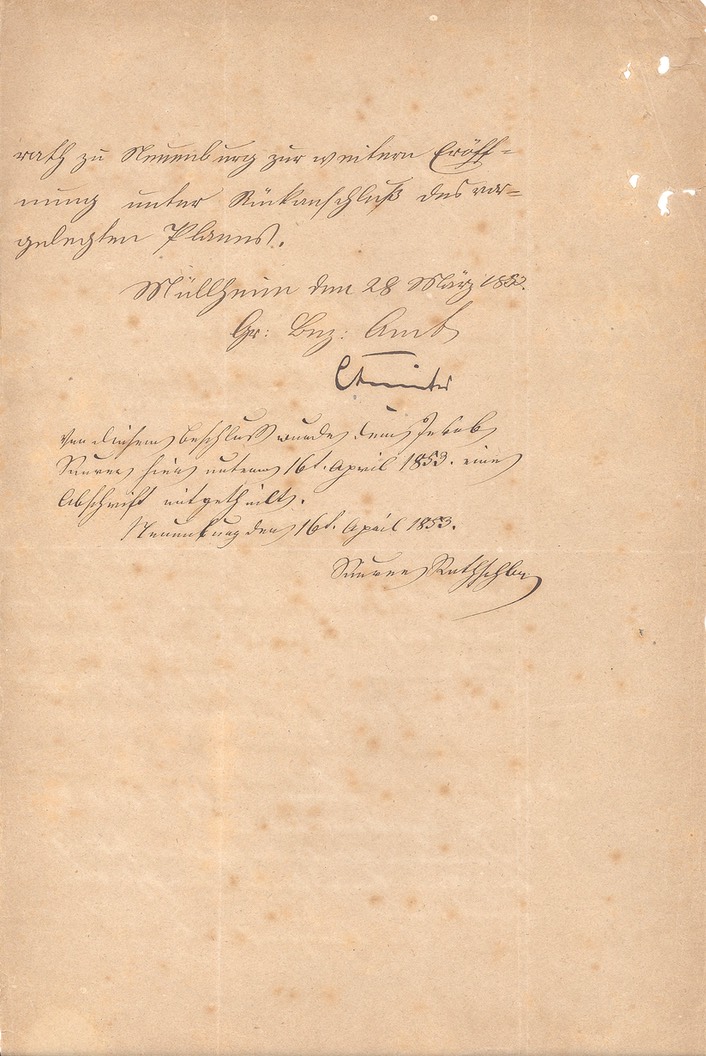 rath zu Neuenburg zur weitern Eröff-
nung unter Rückanschluß des vor-
gelegten Planes.
Müllheim den 28 März 1853.
Gr: Bez: Amt
Von diesem Beschluss wurde dem Jakob
hier unterm 16t. April 1853. eine
Abschrift mitgetheilt.
Neuenburg den 16t. April 1853.
Rathschbr